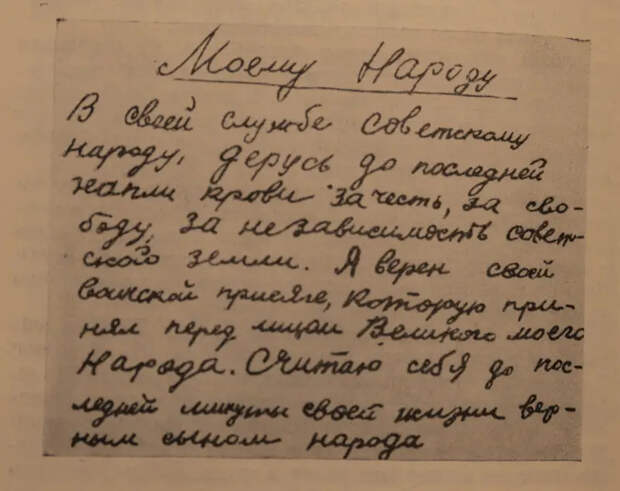 Моему Народу
В своей службе советскому
народу, дерусь до последней
капли крови за честь, за сво-
боду, за независимость совет-
ского земли. Я верен своей
воинской присяге, которую при-
нял перед лицом Великого моего
Народа. Считаю себя до пос-
ледней минуты своей жизни вер-
ным сыном народа